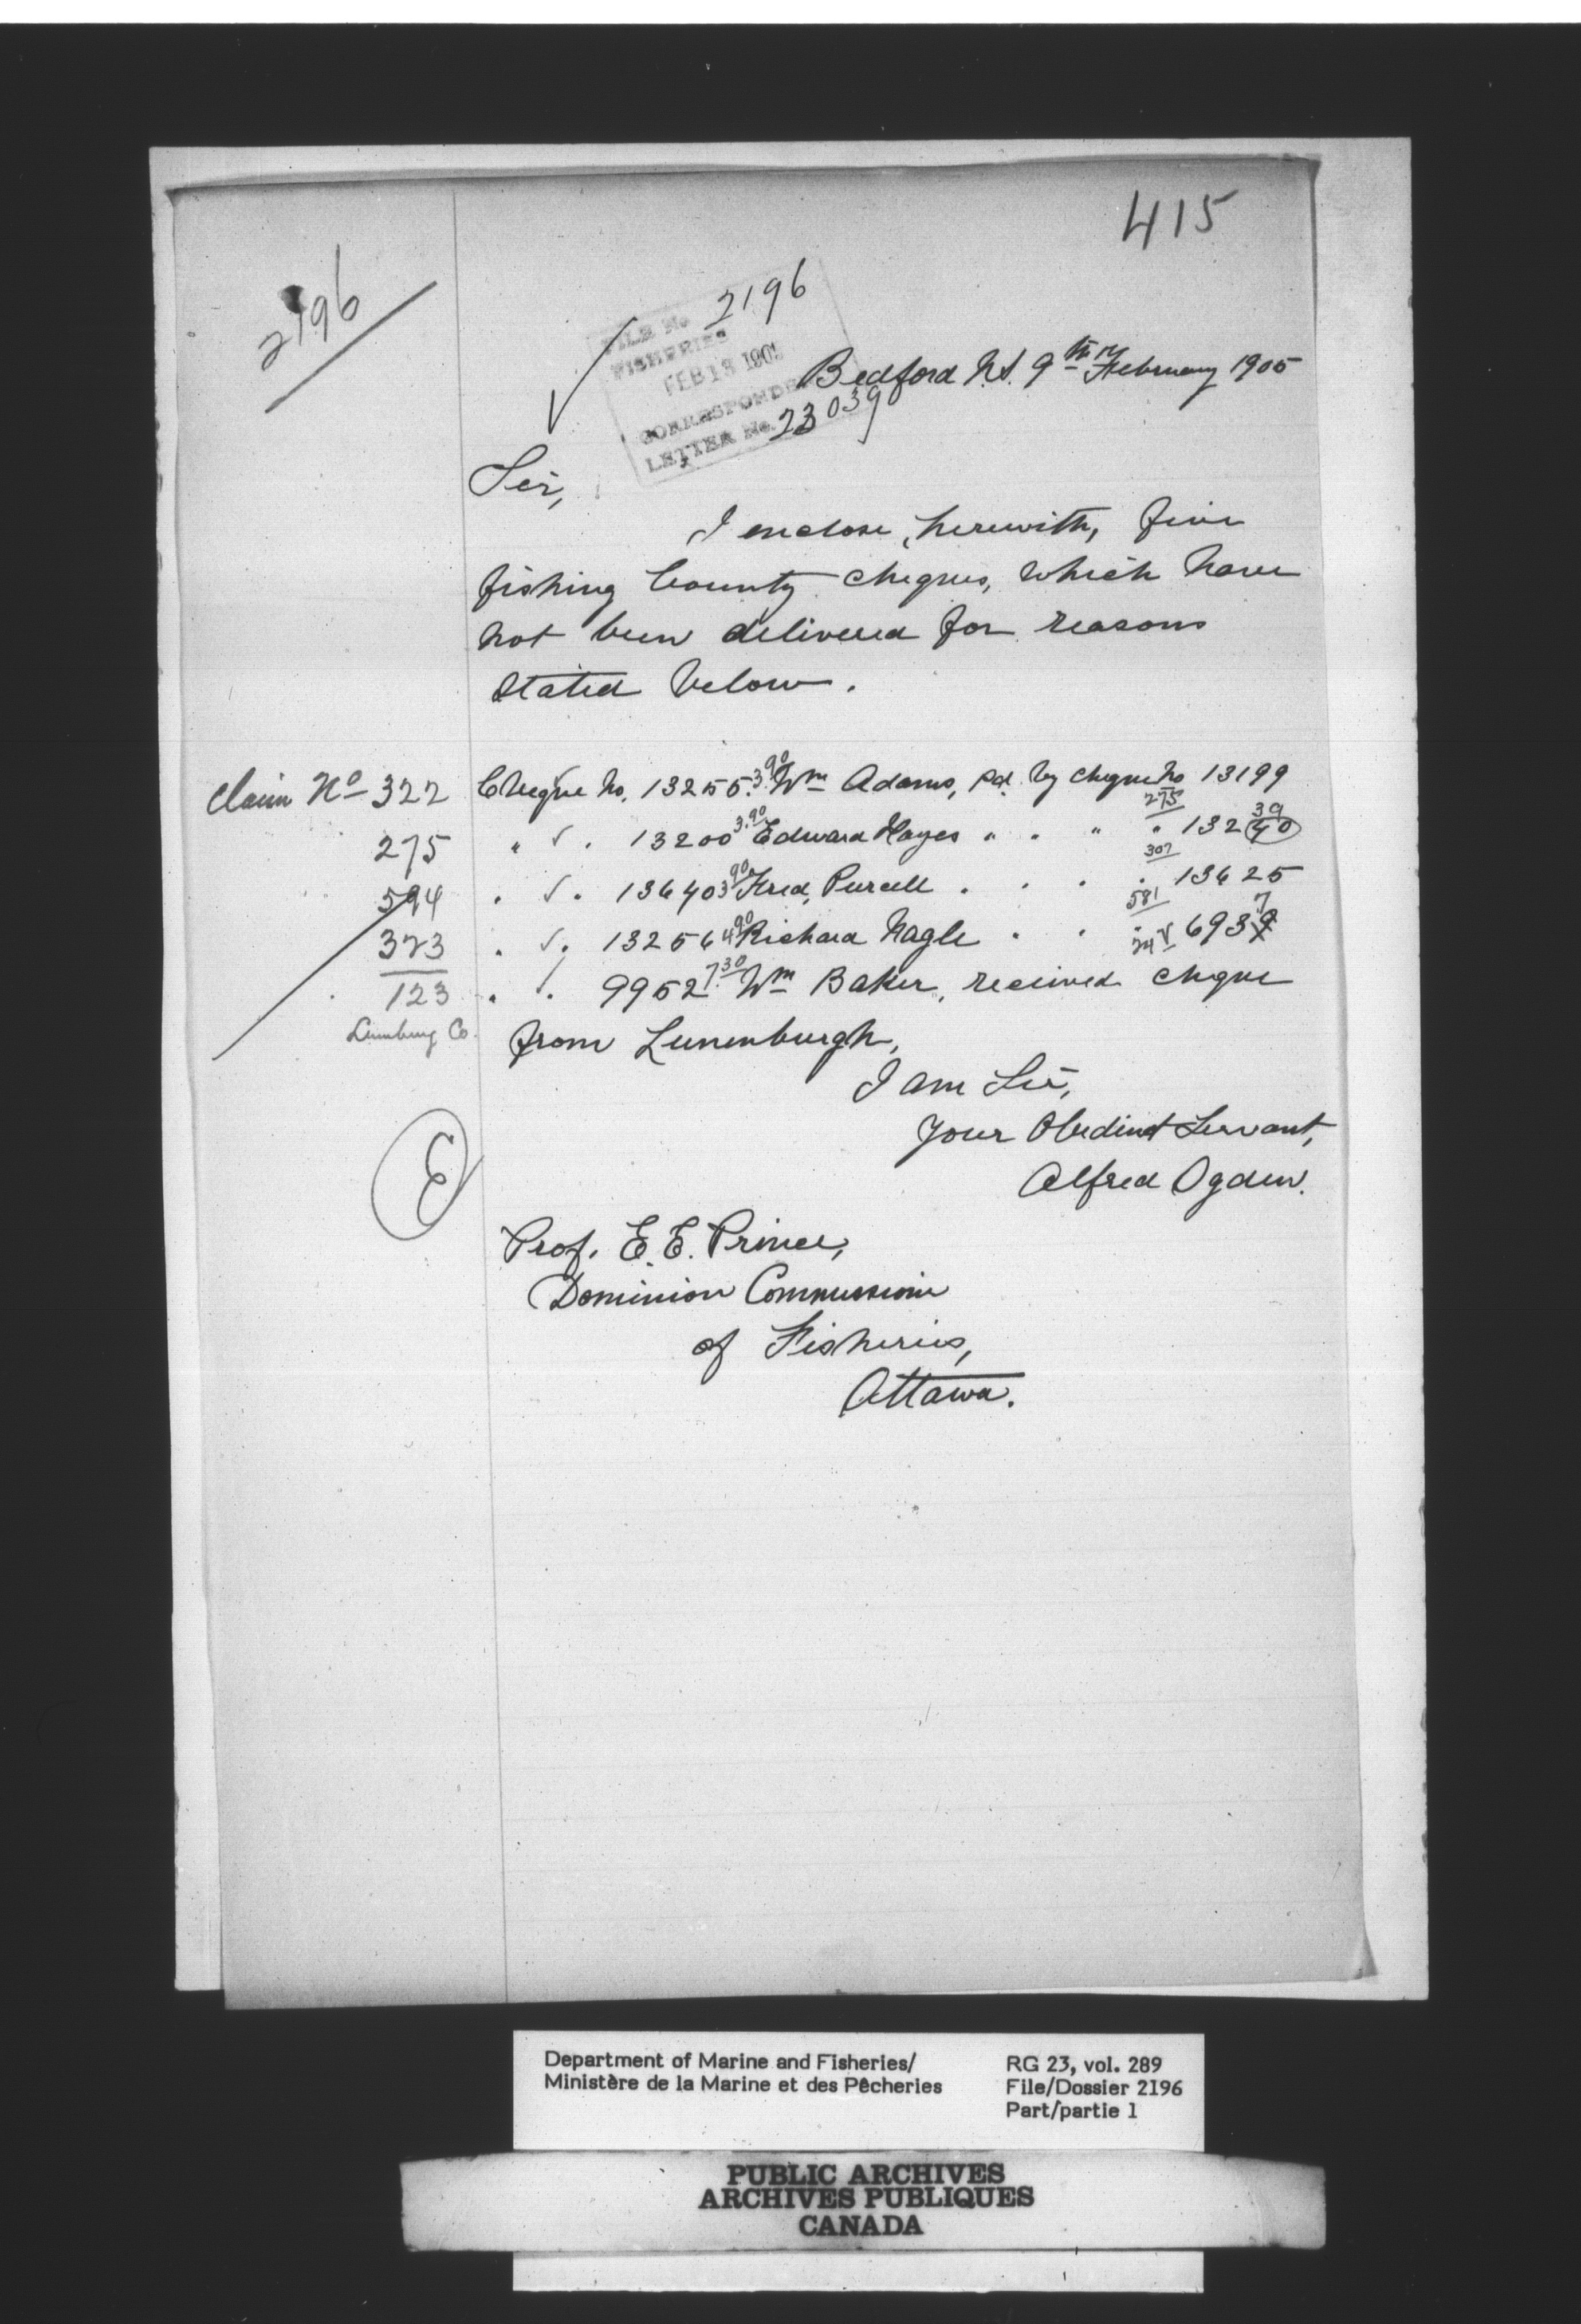 415
2196
FILE No. 2196
FISHERIES
FEB 13 1905
CORRESPONDE
LETTER No. 23039
Bedford N.S. 9th February 1905
Sir,
I enclose, herewith, five
fishing bounty cheques, which have
not been delivered for reasons
stated below.
Claim No 322 Cheque No. 13255. 3.90 Wm Adams, pd. by cheque No 13199
275
275 " " 13200 3.90 Edward Hayes " " " " 13240 39
307
594 " " 13640 3.90 Fred, Purcell " " " " 13625
581
323 " " 13256 4.90 Richard Nagle " " 6939 7
24
123 " " 9952 7.30 Wm Baker, received cheque
Lunenburg Co.
from Lunenburgh,
I am Sir,
Your Obedient Servant,
Alfred Ogden.
E
Prof. E. E. Prince,
Dominion Commissioner
of Fisheries,
Ottawa.
Department of Marine and Fisheries/
Ministère de la Marine et des Pêcheries
RG 23, vol. 289
File/Dossier 2196
Part/partie 1
PUBLIC ARCHIVES
ARCHIVES PUBLIQUES
CANADA